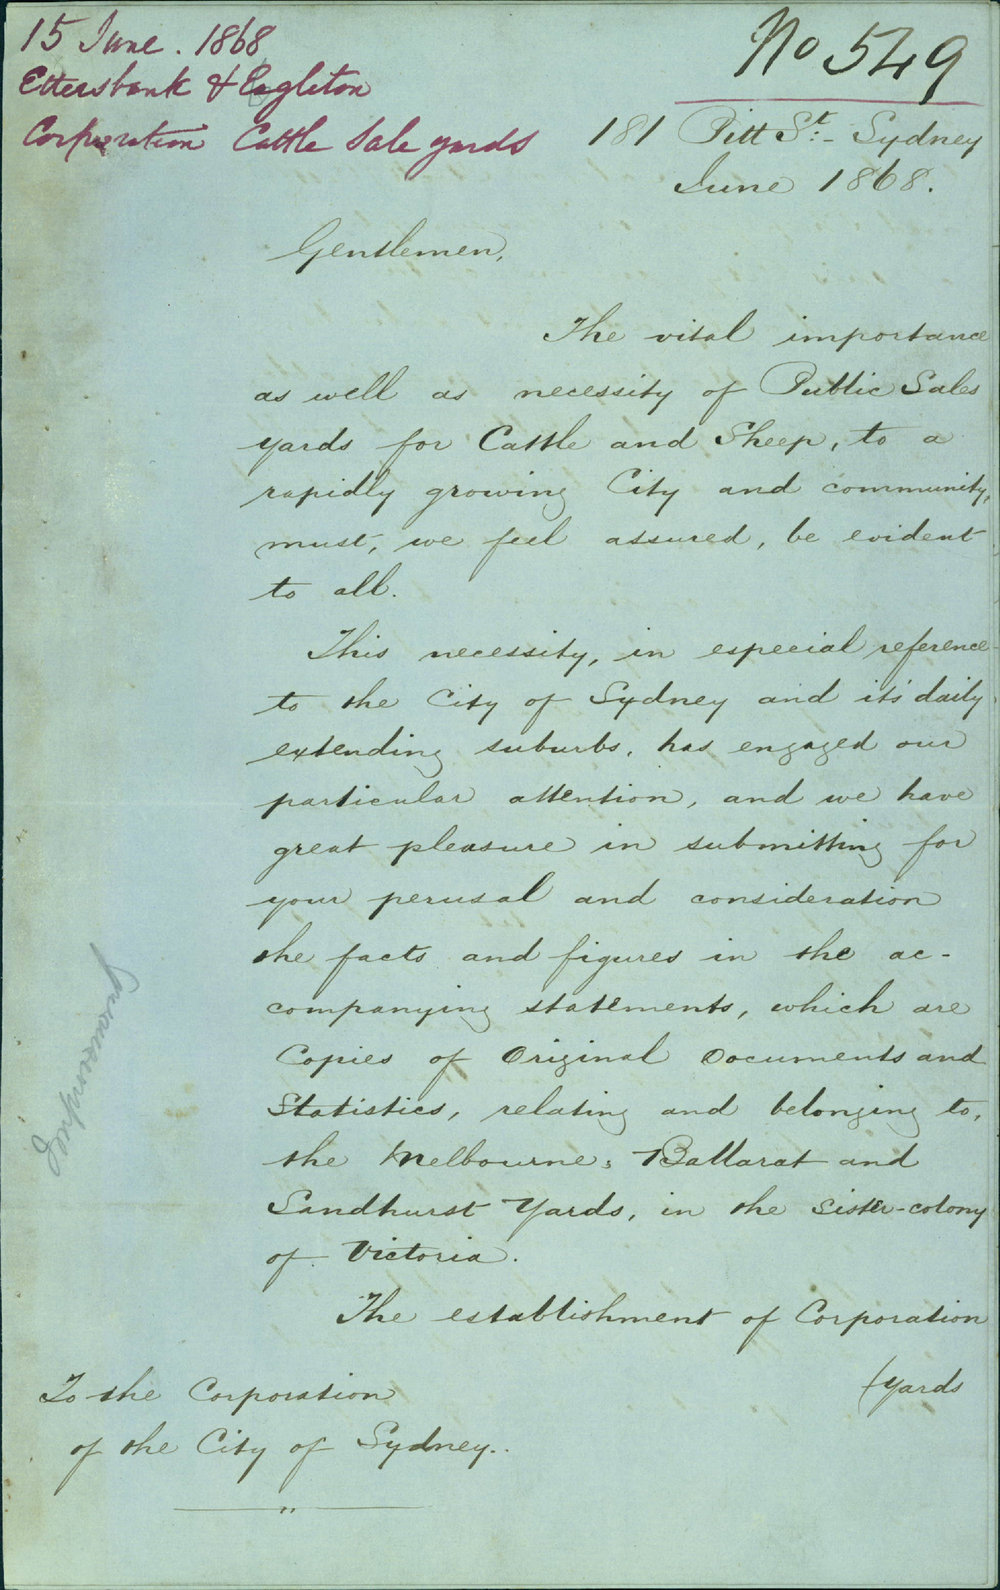 15 June. 1868
Ettersbank & Eagleton
Corporation Cattle Sale yards
No 549
181 Pitt St. - Sydney
June 1868.
Gentlemen,
The vital importance
as well as necessity of Public Sales
yards for Cattle and Sheep, to a
rapidly growing City and community,
must, we feel assured, be evident
to all.
This necessity, in especial reference
to the City of Sydney and its' daily
extending suburbs, has engaged our
particular attention, and we have
great pleasure in submitting for
your perusal and consideration
the facts and figures in the ac-
companying statements, which are
Copies of Original Documents and
Statistics, relating and belonging to,
the Melbourne, Ballarat and
Sandhurst Yards, in the Sister-colony
of Victoria.
The establishment of Corporation
/yards
To the Corporation
of the City of Sydney..
Improvement